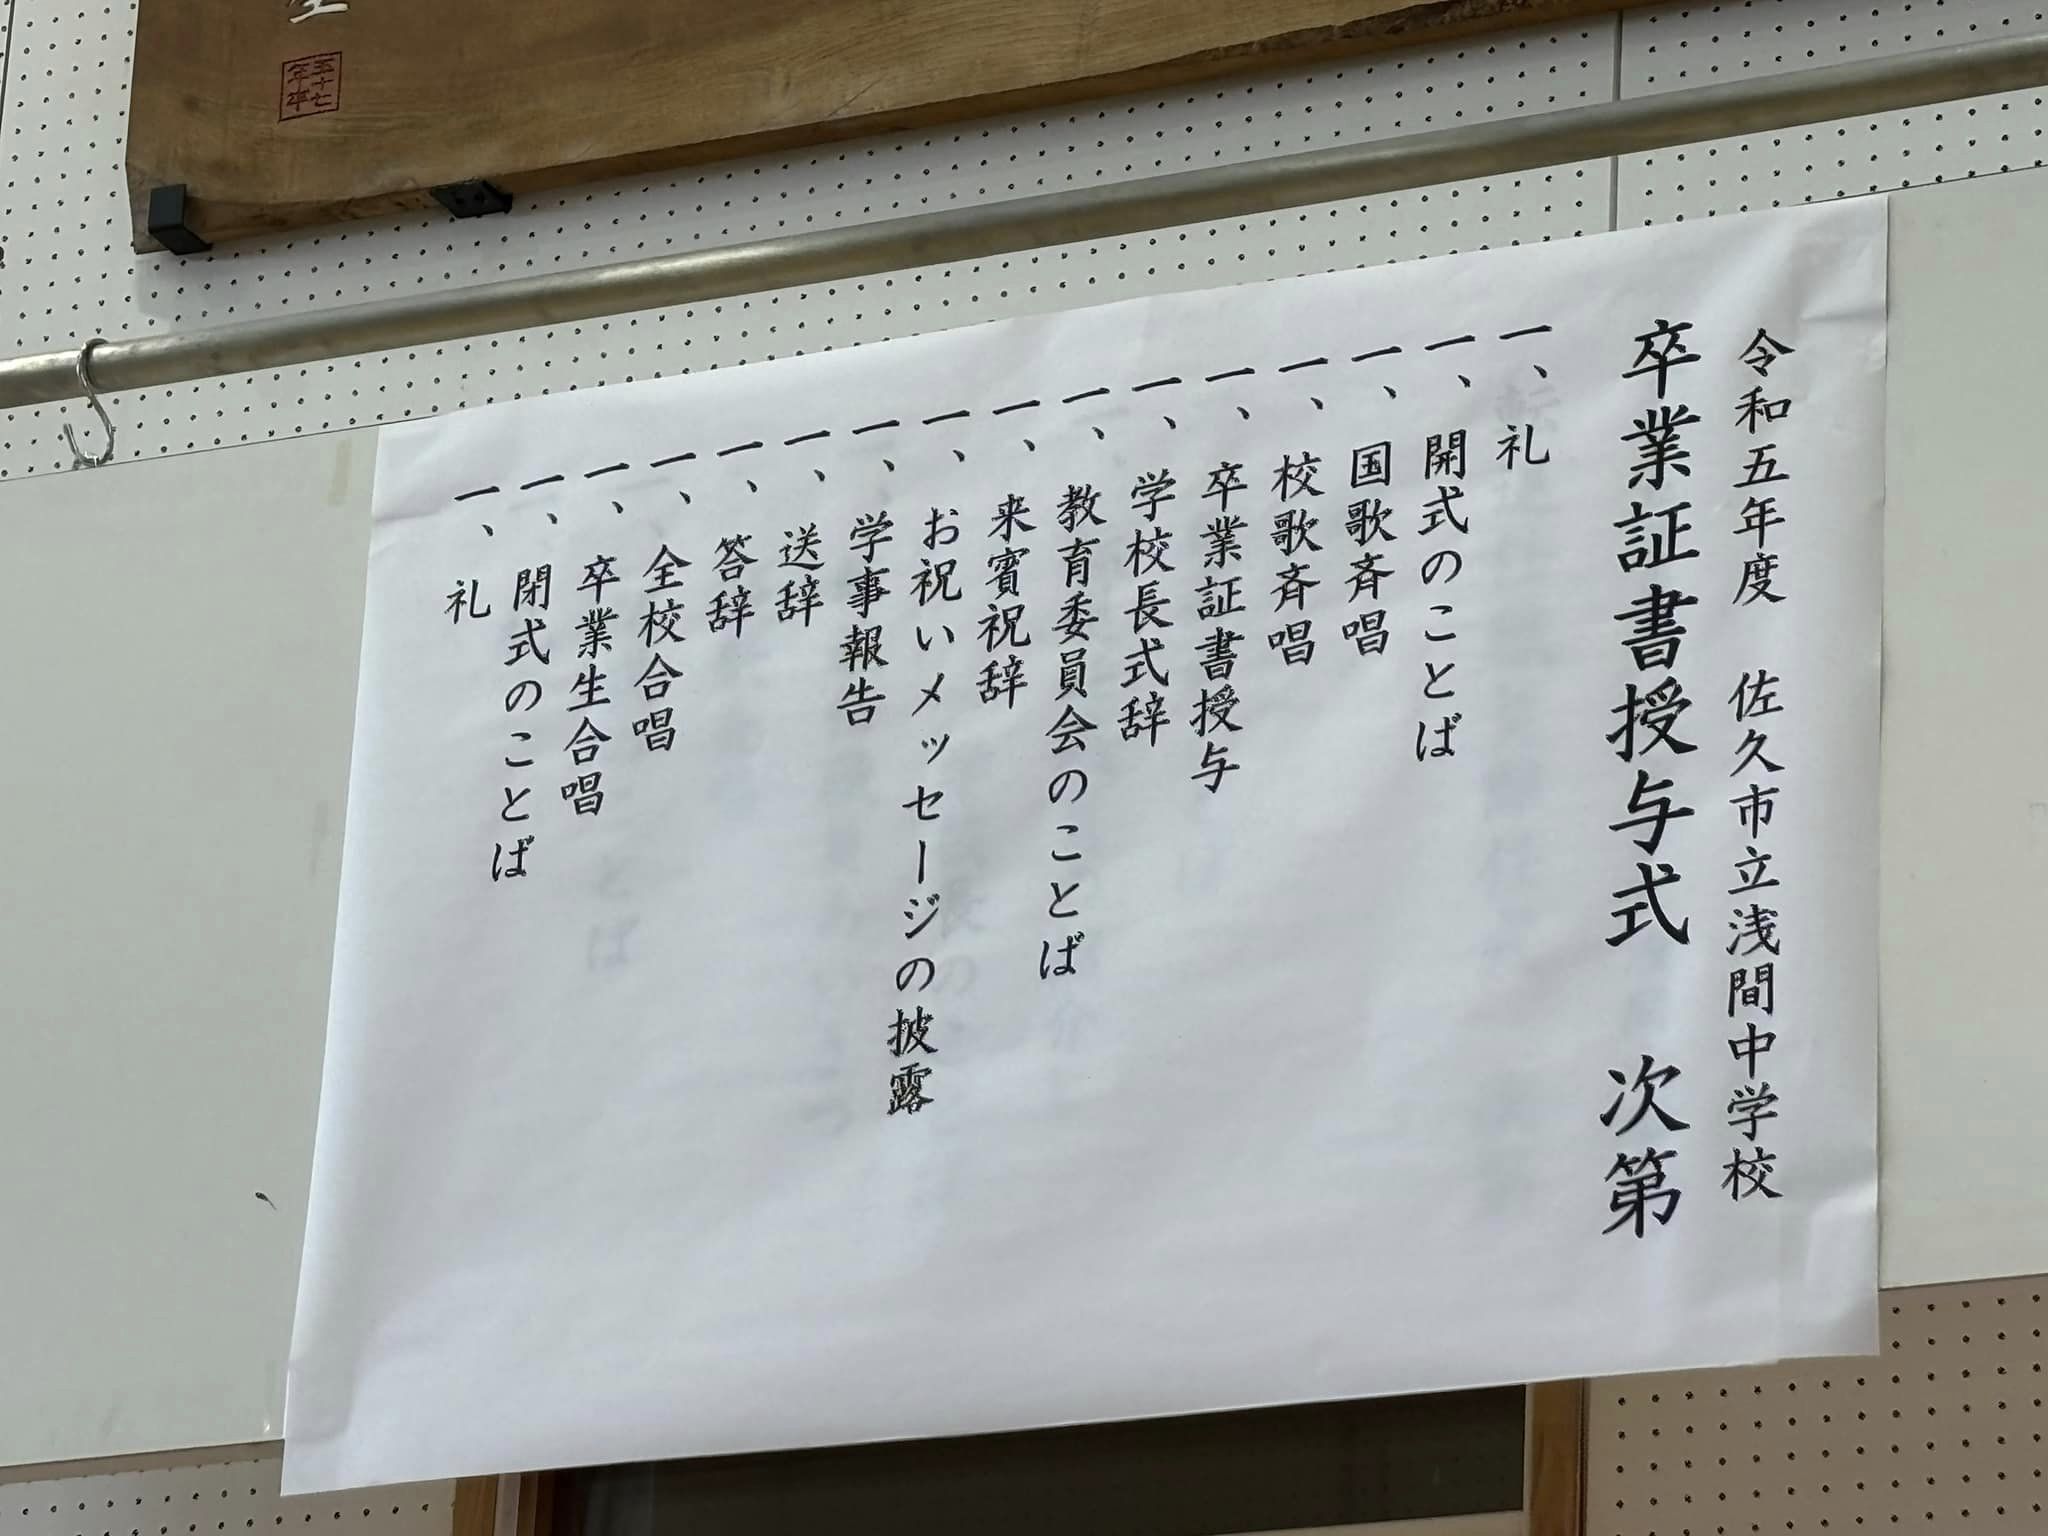 令和五年度　佐久市立浅間中学校
卒業証書授与式　次第
一、礼
一、開式のことば
一、国歌斉唱
一、校歌斉唱
一、卒業証書授与
一、学校長式辞
一、教育委員会のことば
一、来賓祝辞
一、お祝いメッセージの披露
一、学事報告
一、送辞
一、答辞
一、全校合唱
一、卒業生合唱
一、閉式のことば
一、礼